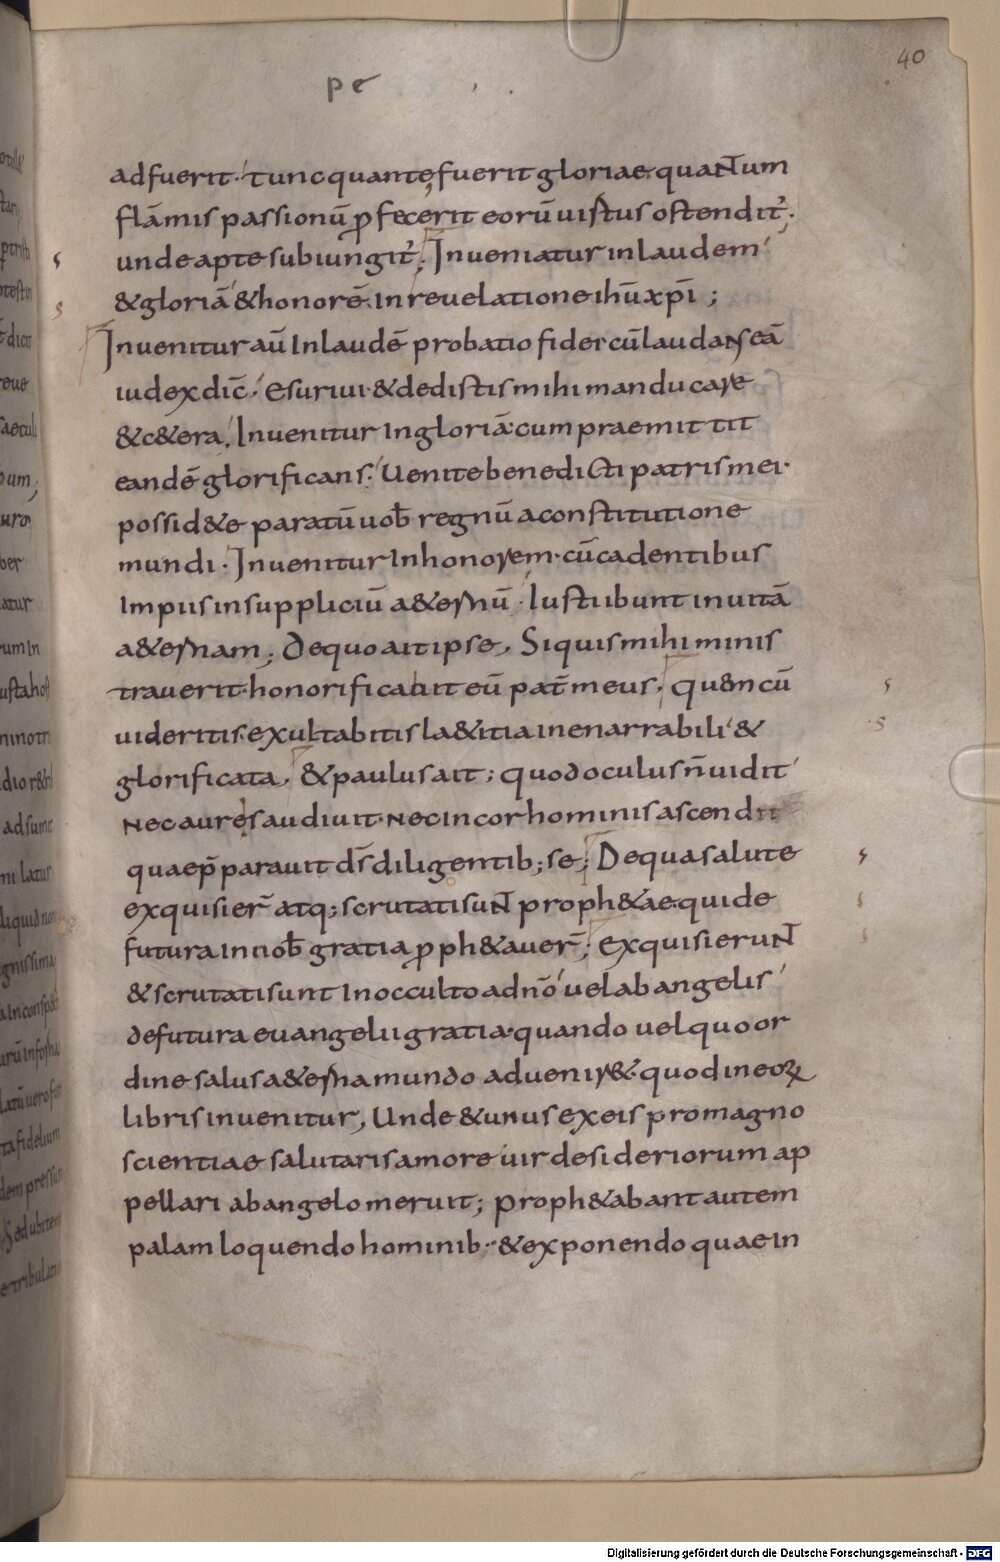 40
pe
adfuerit· tunc quantę fuerit gloriae quantum
flāmis passionū ꝓfecerit eorū uirtus ostendit᷑·
unde apte subiungit᷑; Inueniatur in laudem
& gloriā & honorē. in reuelatione ihū xpī ;
Inuenitur aū In laudē probatio fidei cū laudans eā
iudex dic̄, Esuriui· & dedistis mihi manducare
& c&era, Inuenitur In gloriā· cum praemittit
eandē glorificans. Uenite benedicti patris mei·
possid&e paratū uob̄ regnū a constitutione
mundi. Inuenitur In honorem· cū cadentibus
Impiis in suppliciū a&ernū· Iusti ibunt in uitā
a&ernam; De quo ait ipse, Si quis mihi minis
trauerit· honorificabit eū pat̄ meus, quem cū
uideritis exultabitis la&itia inenarrabili &
glorificata, & paulus ait; quod oculus n̄ uidit
nec aures audiuit· nec in cor hominis ascendit
quae p̄parauit d̄s diligentib; se; De qua salute
exquisier̄ atq; scrutati sunt proph&ae qui de
futura in uob̄ gratia ꝓph&auer̄; Exquisierunt
& scrutati sunt In occulto a dn̄o uel ab angelis
de futura euangelii gratia· quando uel quo or
dine salus a&erna mundo aduenir& quod in eoꝝ
libris inuenitur, Unde & unus ex eis pro magno
scientiae salutaris amore uir desideriorum ap
pellari ab angelo meruit; Proph&abant autem
palam loquendo hominib· & exponendo quae in
Digitalisierung gefördert durch die Deutsche Forschungsgemeinschaft - DFG